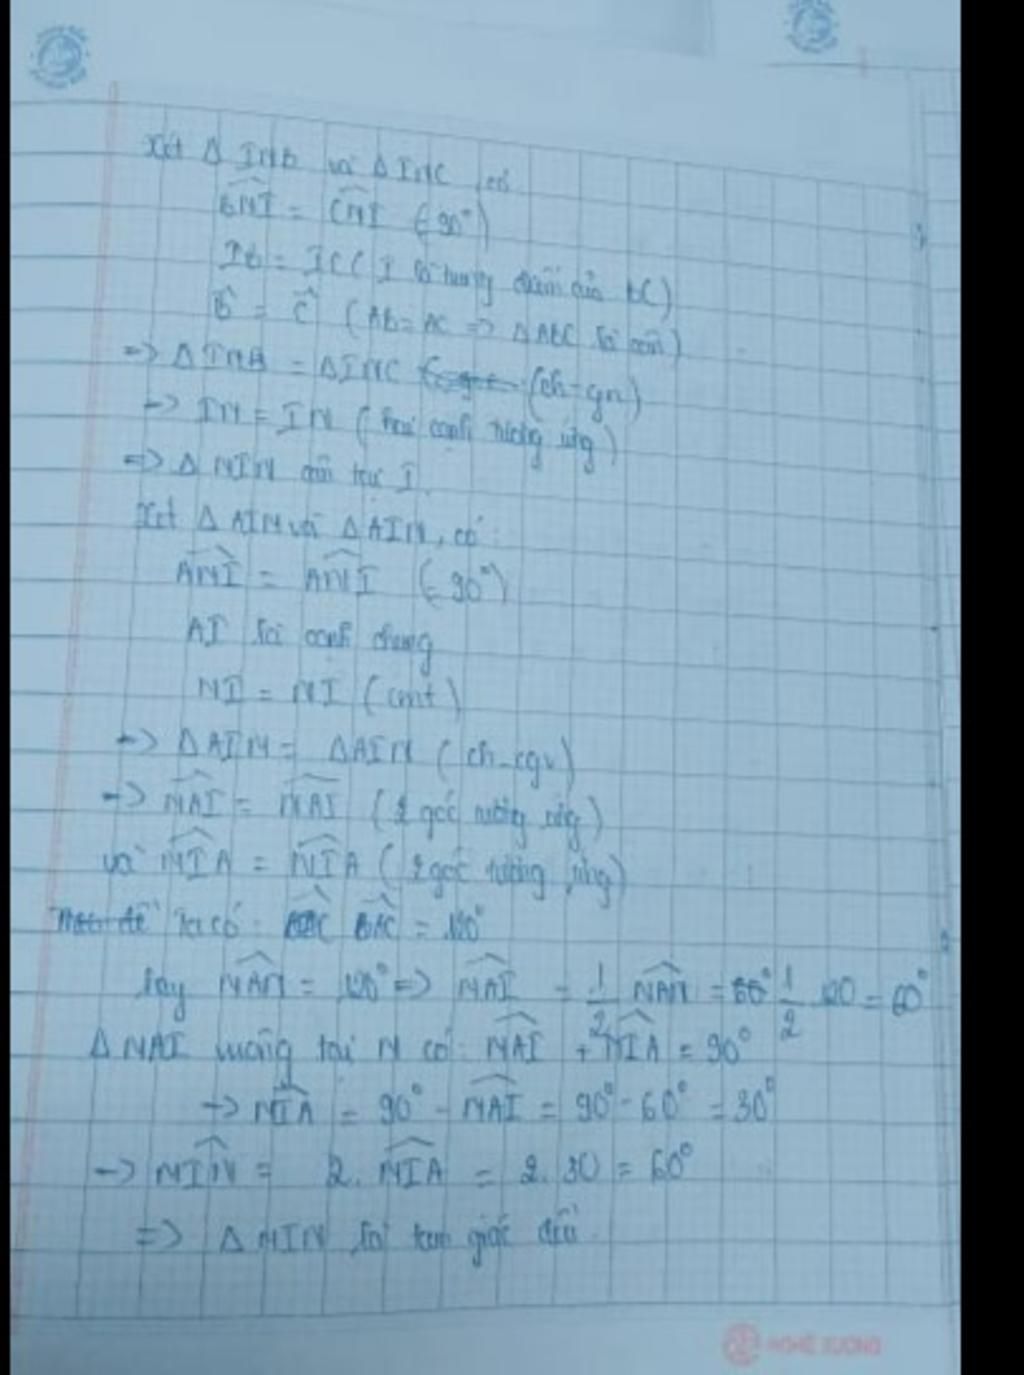 Xét Δ IMB và Δ INC, có
BMI = CNI (=90°)
IB = IC (I là trung điểm của BC)
B = C (AB = AC => Δ ABC là cân)
=> Δ IMB = Δ INC (ch-gn)
-> IM = IN (hai cạnh tương ứng)
=> Δ MIN cân tại I.
Xét Δ AIM và Δ AIN, có:
AMI = ANI (=90°)
AI là cạnh chung
MI = NI (cmt)
-> Δ AIM = Δ AIN (ch-cgv)
-> MAI = NAI (2 góc tương ứng)
và MIA = NIA (2 góc tương ứng)
Theo đề ta có: BAC = 120°
hay MAN = 120° => MAI = 1/2 MAN = 1/2 120 = 60°
Δ MAI vuông tại M có: MAI + MIA = 90°
-> MIA = 90° - MAI = 90° - 60° = 30°
-> MIN = 2. MIA = 2. 30 = 60°
=> Δ MIN là tam giác đều.
NGHÊ XUONG